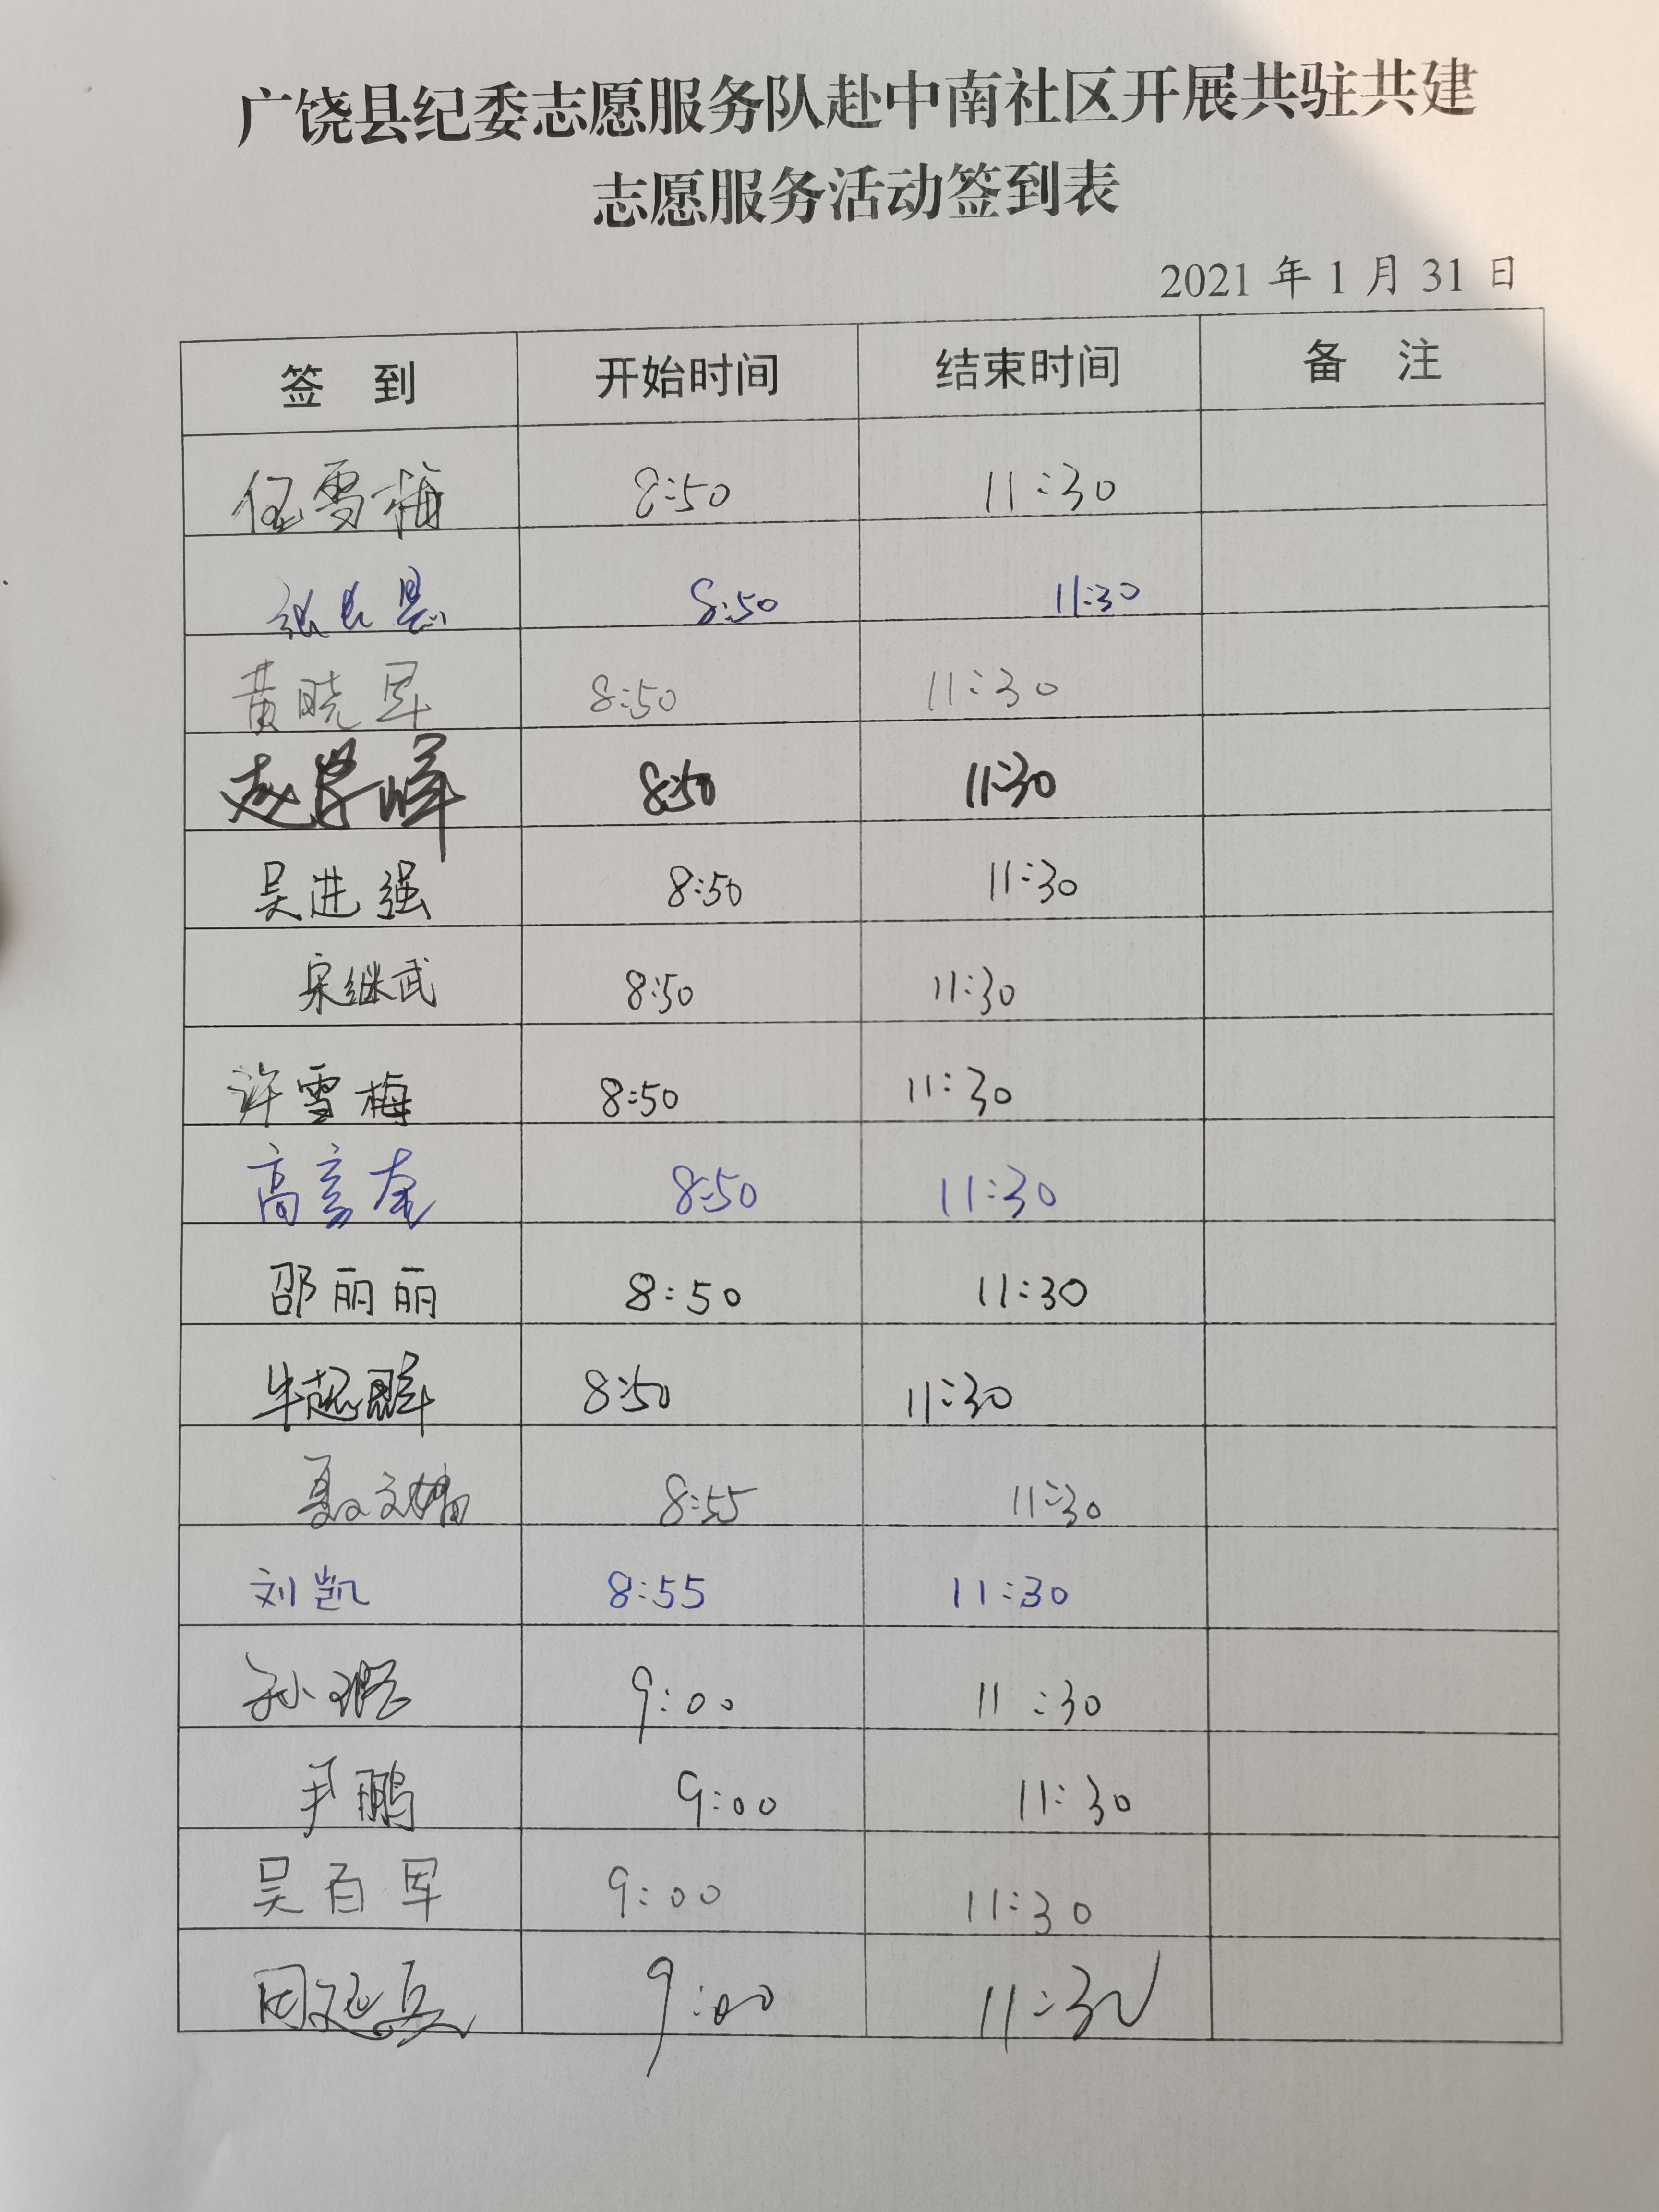 广饶县纪委志愿服务队赴中南社区开展共驻共建
志愿服务活动签到表
2021年1月31日
签 到 开始时间 结束时间 备 注
任雪梅 8:50 11:30
8:50 11:30
黄晓军 8:50 11:30
赵学峰 8:50 11:30
吴进强 8:50 11:30
宋继武 8:50 11:30
许雪梅 8:50 11:30
高彦奎 8:50 11:30
邵丽丽 8:50 11:30
牛超群 8:50 11:30
聂文娟 8:55 11:30
刘凯 8:55 11:30
孙 9:00 11:30
尹鹏 9:00 11:30
吴百军 9:00 11:30
周延兵 9:00 11:30